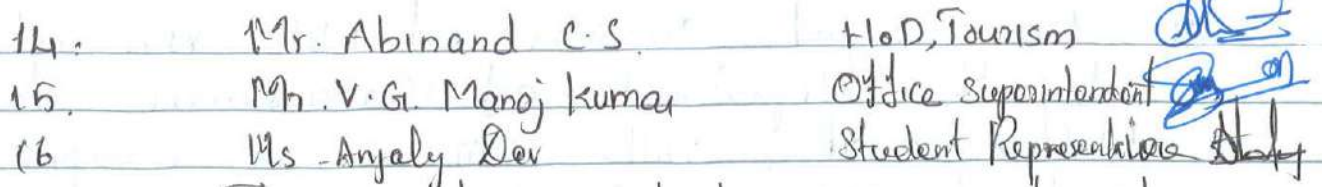 14. Mr. Abinand C.S. HoD, Tourism
15. Mr. V.G. Manoj Kumar Office Superintendent
16 Ms. Anjaly Dev Student Representative